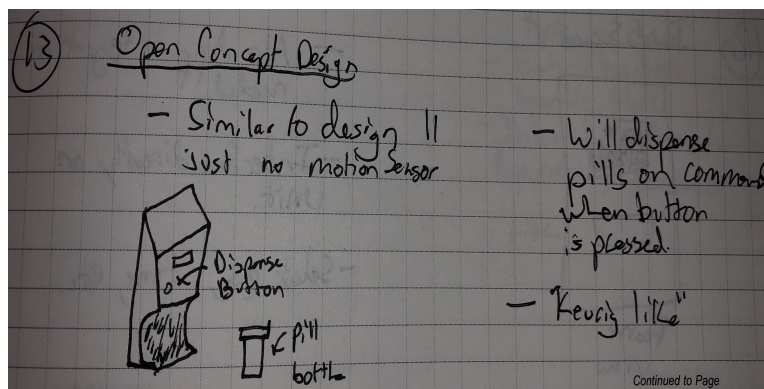 13
Open Concept Design
- Similar to design 11
just no motion sensor
Dispense
Button
pill
bottle
- Will dispense
pills on command
when button
is pressed.
- Keurig like"
Continued to Page